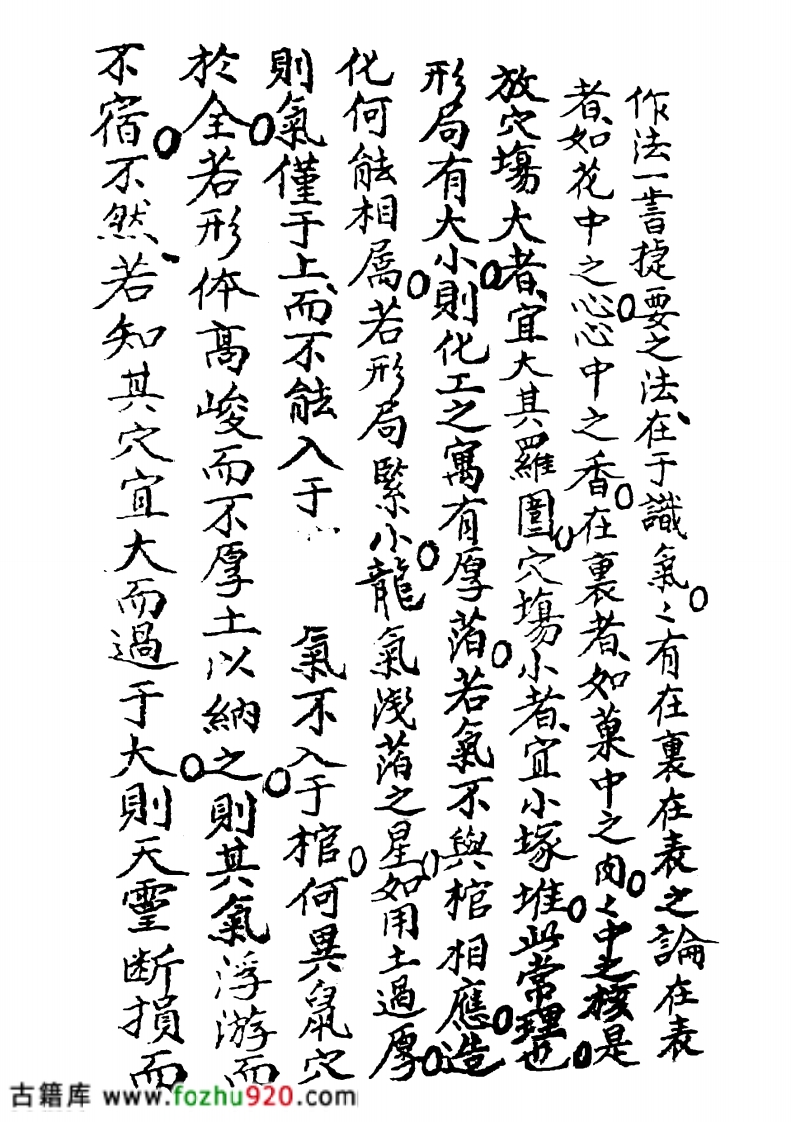 作法一書捷要之法在于識氣〻有在裏在表之論在表
者如花中之心心中之香在裏者如菓中之肉〻中之核是
放穴塲大者宜大其羅圍穴塲小者宜小塚堆此常理也
形局有大小則化工之寓有厚薄若氣不與棺相應造
化何能相属若形局緊小龍氣浅薄之星如用土過厚
則氣僅于上而不能入于 氣不入于棺何異鼠穴
於全若形体高峻而不厚土以納之則其氣浮游而
不宿不然若知其穴宜大而過于大則天靈断損而
古籍库 www.fozhu920.com